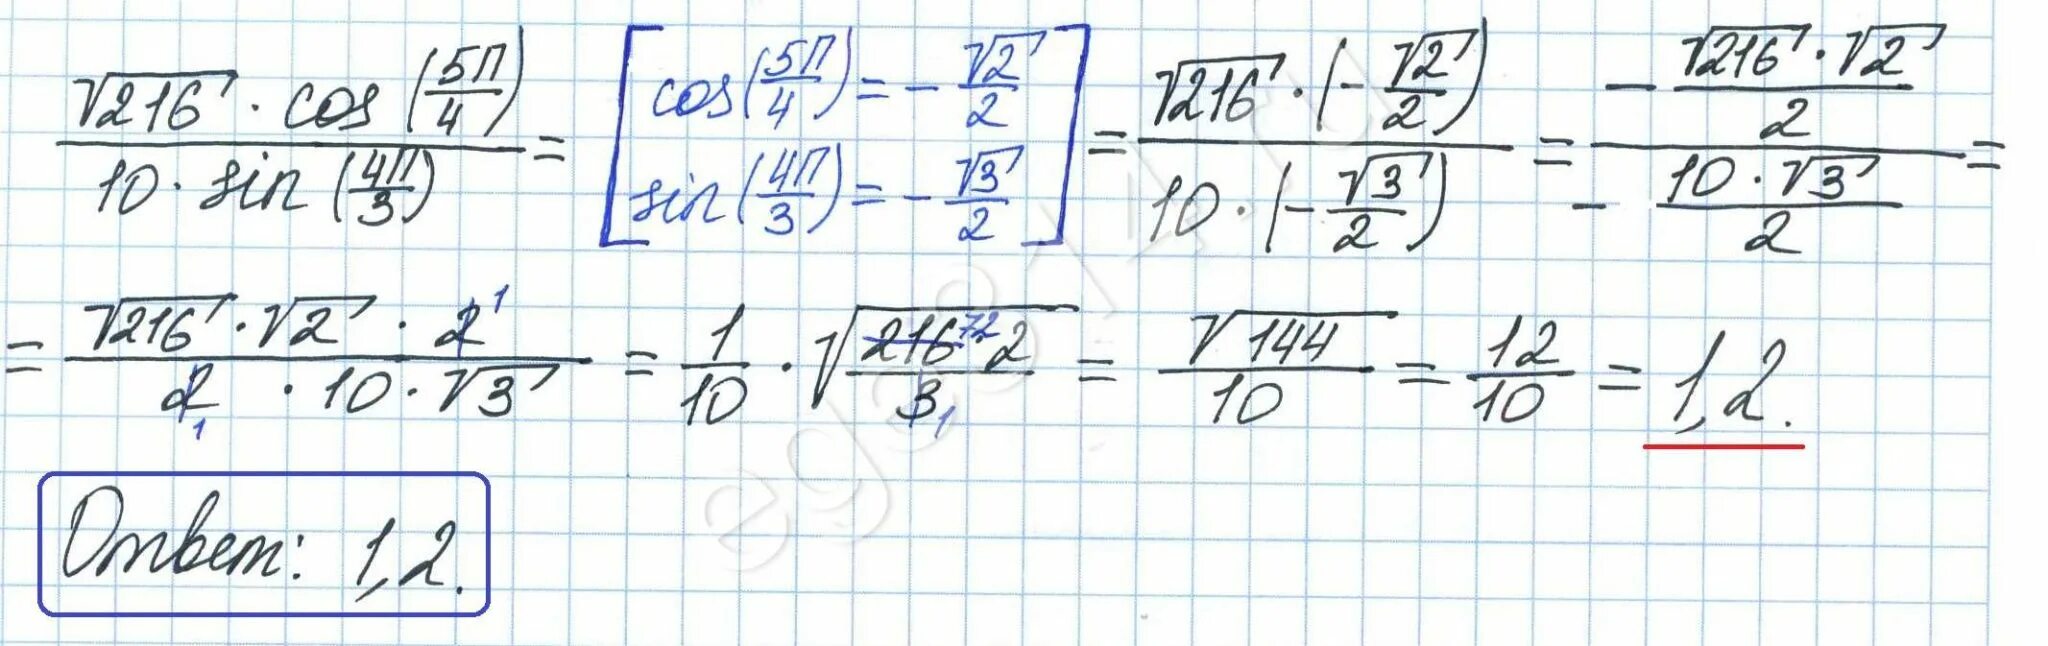 √216 · cos(5π/4) / 10 · sin(4π/3) = [cos(5π/4) = -√2/2 sin(4π/3) = -√3/2] = √216 · (-√2/2) / 10 · (-√3/2) = -√216 · √2/2 / -10 · √3/2 =
= √216 · √2 · 2 1 / 2 1 · 10 · √3 = 1/10 · √(216 72 2 / 3 1) = √144/10 = 12/10 = 1,2.
Ответ: 1,2.
ege314.ru